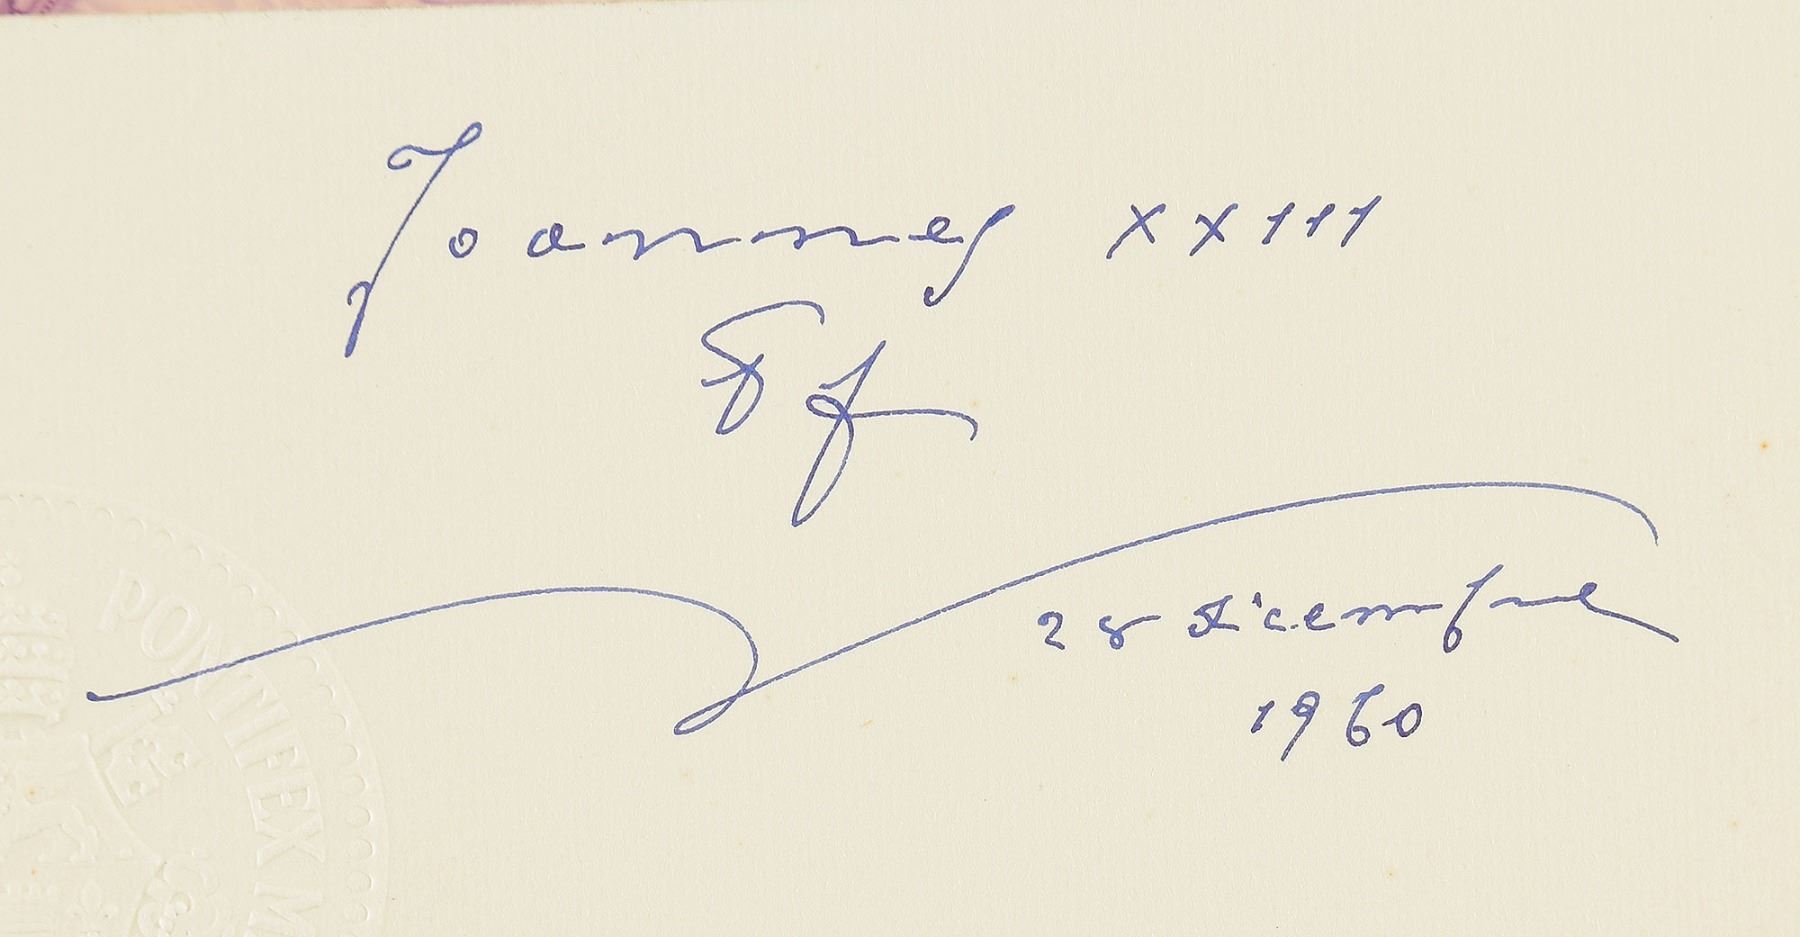 Joannes XXIII
PP
28 dicembre
1960
PONTIFEX M